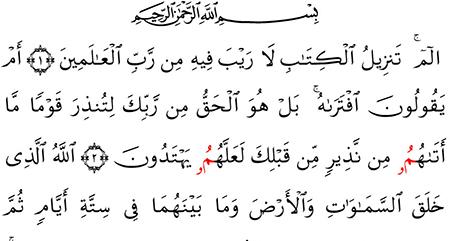 بِسْمِ اللَّهِ الرَّحْمَٰنِ الرَّحِيمِ
الٓمٓ ۚ تَنزِيلُ الْكِتَٰبِ لَا رَيْبَ فِيهِ مِن رَّبِّ الْعَٰلَمِينَ ۝١ أَمْ
يَقُولُونَ افْتَرَىٰهُ ۚ بَلْ هُوَ الْحَقُّ مِن رَّبِّكَ لِتُنذِرَ قَوْمًا مَّا
أَتَىٰهُمُۥ مِن نَّذِيرٍ مِّن قَبْلِكَ لَعَلَّهُمُۥ يَهْتَدُونَ ۝٢ اللَّهُ الَّذِى
خَلَقَ السَّمَٰوَٰتِ وَالْأَرْضَ وَمَا بَيْنَهُمَا فِى سِتَّةِ أَيَّامٍ ثُمَّ